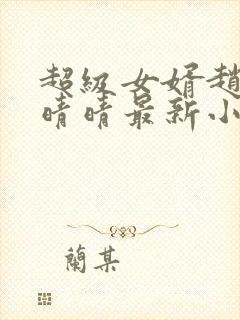 超級女婿趙
晴晴最新小
蘭某